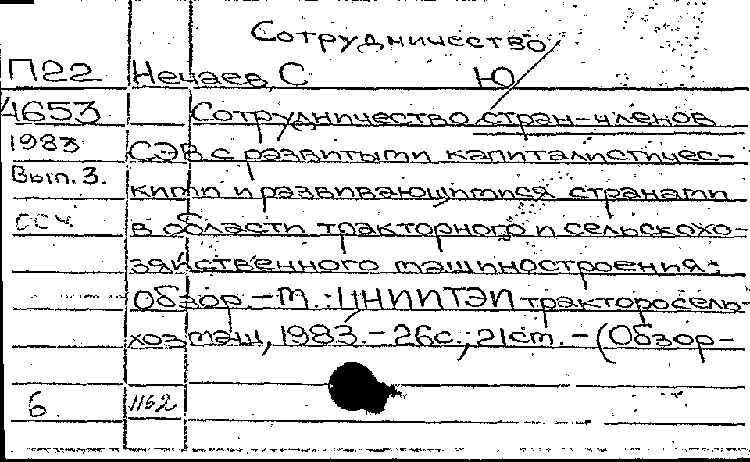 Сотрудничество
П22 Нечаев, С Ю
4653 Сотрудничество стран-членов
1983 СЭВ с развитыми капиталистичес-
Вып. 3. кими и развивающимися странами
в области тракторного и сельскохо-
зяйственного машиностроения:
Обзор. - М.: ЦНИИТЭИ тракторосель-
хозмаш, 1983. - 26с.; 21см. - (Обзор-
6 1162